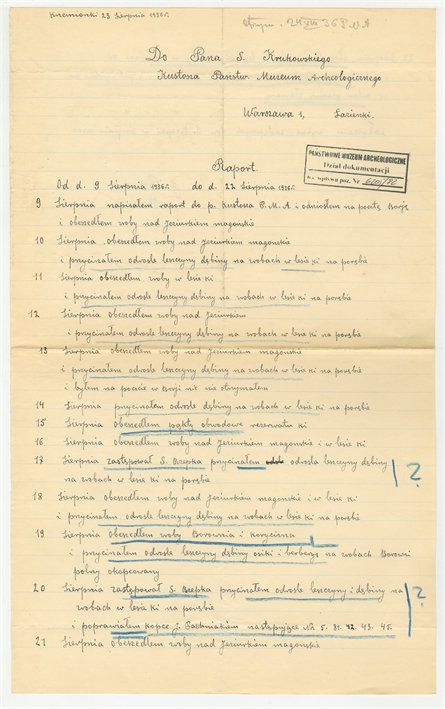 Krzemionki 23 Sierpnia 1936 r.
Otrzym. 24 VIII 36 P.M.A
Do Pana S. Krukowskiego
Kustosza Państw. Museum Archeologicznego
Warszawa 1, Łazienki.
PAŃSTWOWE MUZEUM ARCHEOLOGICZNE
Dział dokumentacji
Raport
Od d. 9 Sierpnia 1936 r. do d. 22 Sierpnia 1936 r.
9 Sierpnia napisałem raport do p. Kustosza P.M.A i odniosłem na pocztę Borja
i obeszedłem roby nad Jeziurkiem magonskie
10 Sierpnia obeszedłem roby nad Jeziurkiem magonskie
i przycinałem odrosle leszczyny dębiny na robach w lesie ki na porębie
11 Sierpnia obeszedłem roby w lesie ki
i przycinałem odrosle leszczyny dębiny na robach w lesie ki na porębie
12 Sierpnia obeszedłem roby nad Jeziurkiem
i przycinałem odrosle leszczyny dębiny na robach w lesie ki na porębie
13 Sierpnia obeszedłem roby nad Jeziurkiem magonskie
i przycinałem odrosle leszczyny dębiny na robach w lesie ki na porębie
i byłem na poczcie w Borji nic nie otrzymałem
14 Sierpnia przycinałem odrosle dębiny na robach w lesie ki na porębie
15 Sierpnia obeszedłem pąkty obwodowe rezerwatu ki
16 Sierpnia obeszedłem roby nad Jeziurkiem magonskie i w lesie ki
17 Sierpnia zastępował S. Rzepka przycinałem odrosle leszczyny dębiny
na robach w lesie ki na porębie ?
18 Sierpnia obeszedłem roby nad Jeziurkiem magonskie i w lesie ki
i przycinałem odrosle leszczyny dębiny na robach w lesie ki na porębie
19 Sierpnia obeszedłem roby Borownia i Korycizna
i przycinałem odrosle leszczyny dębiny osiki i berberys na robach Borowni
polny okopcowany
20 Sierpnia zastępował S. Rzepka przycinałem odrosle leszczyny i dębiny na
robach w lesie ki na porębie ?
i poprawiałem kopce J. Pachniaków następujące № 5. 31. 42. 43. 45.
21 Sierpnia obeszedłem roby nad Jeziurkiem magonskie